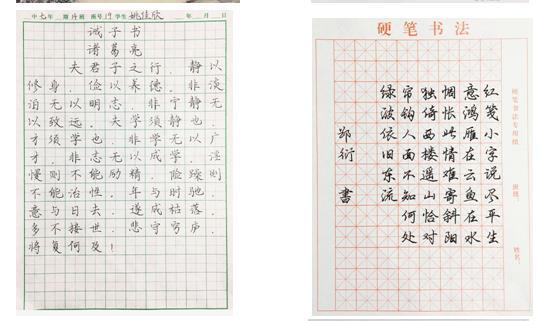 中七年 期 班 座号19 学生姚佳欣 年 月 日
诫子书
诸葛亮
夫君子之行，静以
修身，俭以养德。非淡
泊无以明志，非宁静无
以致远。夫学须静也，
才须学也，非学无以广
才，非志无以成学。淫
慢则不能励精，险躁则
不能治性。年与时驰，
意与日去，遂成枯落，
多不接世，悲守穷庐，
将复何及！
硬笔书法
红笺小字说尽平生
意鸿雁在云鱼在水
惆怅此情难寄斜阳
独倚西楼遥山恰对
帘钩人面不知何处
绿波依旧东流
郑衍書
硬笔书法专用纸
班级：
姓名：